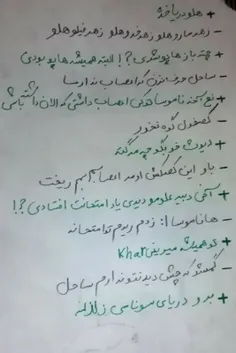 + هلو دریاخه
- زهرمارو هلو زهر و هلو زهر فیلو هلو
+ چته باز هاپو شدی؟! البته همیشه هاپو بودی
- ساحل حرف نزن که اعصاب ندارما
+ نچ نچ نچ ناموسا کی اعصاب داشتی که الان داشته باشی
- کصفول گوه نخور
+ دیوث خو بگو چه مرگته
- باو این کصکش اومد اعصابم بهم ریخت
+ آخی دبیر علومو دیدی یاد امتحانت افتادی؟!
- ها ناموسا: زدم ریدم تو امتحانه
+ تو همیشه میرینی Khar
- گمشو که چش دیدنتو ندارم ساحل
+ برو دریای سونامی زلزله